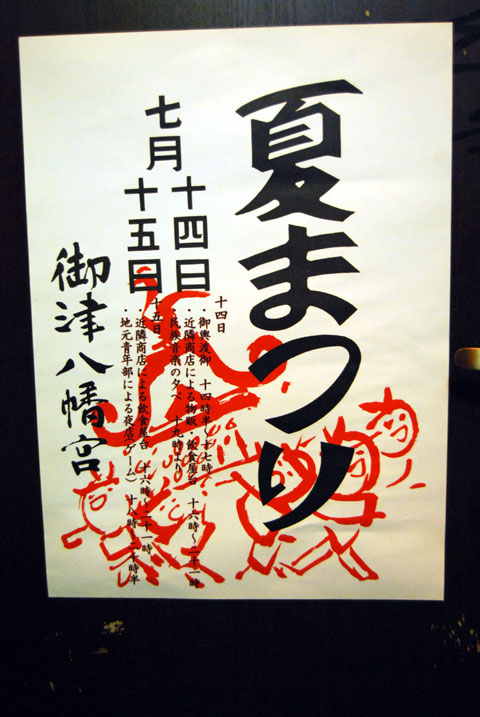 夏まつり
七月十四日
十五日
十四日
・御輿渡御 十四時半〜十七時
・近隣商店による物販・飲食屋台 十六時〜二十一時
・民族音楽の夕べ 十九時より
十五日
・近隣商店による飲食屋台 十六時〜二十一時
・地元青年部による夜店(ゲーム) 十八時〜二十時半
御津八幡宮